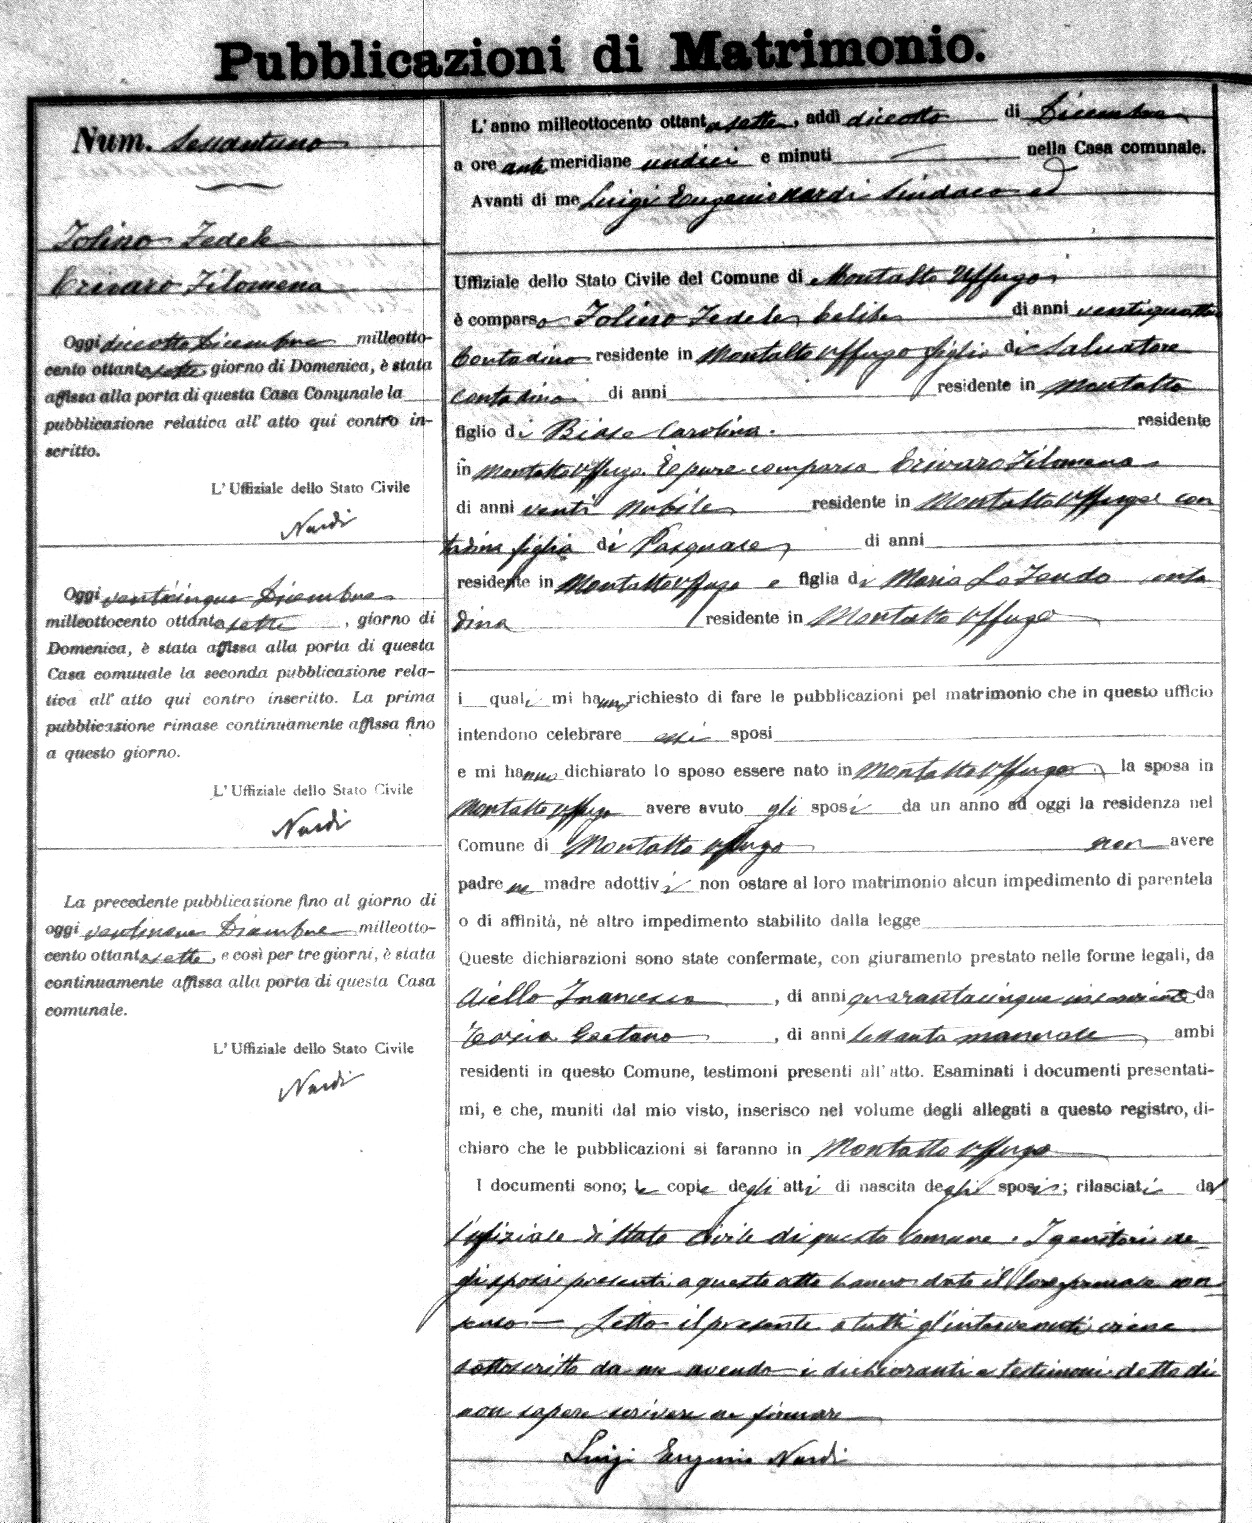 Pubblicazioni di Matrimonio.
Num. Sessantuno
Tolino Fedele
Crivaro Filomena
Oggi diciotto Dicembre milleotto-
cento ottantasette, giorno di Domenica, è stata
affissa alla porta di questa Casa Comunale la
pubblicazione relativa all' atto qui contro in-
scritto.
L' Uffiziale dello Stato Civile
Nardi
Oggi venticinque Dicembre
milleottocento ottantasette, giorno di
Domenica, è stata affissa alla porta di questa
Casa comunale la seconda pubblicazione rela-
tiva all' atto qui contro inscritto. La prima
pubblicazione rimase continuamente affissa fino
a questo giorno.
L' Uffiziale dello Stato Civile
Nardi
La precedente pubblicazione fino al giorno di
oggi Dicembre milleotto-
cento ottantasette, e così per tre giorni, è stata
continuamente affissa alla porta di questa Casa
comunale.
L' Uffiziale dello Stato Civile
Nardi
L' anno milleottocento ottantasette, addì diciotto di Dicembre
a ore antimeridiane undici e minuti nella Casa comunale.
Avanti di me Luigi Eugenio Nardi Sindaco ed
Uffiziale dello Stato Civile del Comune di Montalto Uffugo
è comparso Tolino Fedele celibe di anni ventiquattro
Contadino residente in Montalto Uffugo figlio di Salvatore
contadino di anni residente in Montalto
figlio di Biase Carolina. residente
in Montalto Uffugo. È pure comparsa Crivaro Filomena
di anni venti nubile residente in Montalto Uffugo con
tadina figlia di Pasquale, di anni
residente in Montalto Uffugo e figlia di Maria Lo Feudo conta
dina residente in Montalto Uffugo
i quali mi hanno richiesto di fare le pubblicazioni pel matrimonio che in questo ufficio
intendono celebrare essi sposi
e mi hanno dichiarato lo sposo essere nato in Montalto Uffugo, la sposa in
Montalto Uffugo avere avuto gli sposi da un anno ad oggi la residenza nel
Comune di Montalto Uffugo non avere
padre ne madre adottivi non ostare al loro matrimonio alcun impedimento di parentela
o di affinità, né altro impedimento stabilito dalla legge
Queste dichiarazioni sono state confermate, con giuramento prestato nelle forme legali, da
Aiello Francesco, di anni quarantacinque da
Gaetano, di anni sessanta ambi
residenti in questo Comune, testimoni presenti all' atto. Esaminati i documenti presentati-
mi, e che, muniti dal mio visto, inserisco nel volume degli allegati a questo registro, di-
chiaro che le pubblicazioni si faranno in Montalto Uffugo
I documenti sono; le copie degli atti di nascita degli sposi; rilasciati dal
l'ufiziale di Stato Civile di questo Comune. I genitori de-
gli sposi presenti a questo atto hanno dato il loro con
senso - Letto il presente a tutti gl'intervenuti viene
sottoscritto da me avendo i dichioranti e testimoni detto di
non sapere scrivere ne firmare
Luigi Eugenio Nardi